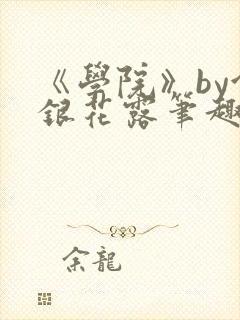 《學院》by
銀花露筆趣
余龍